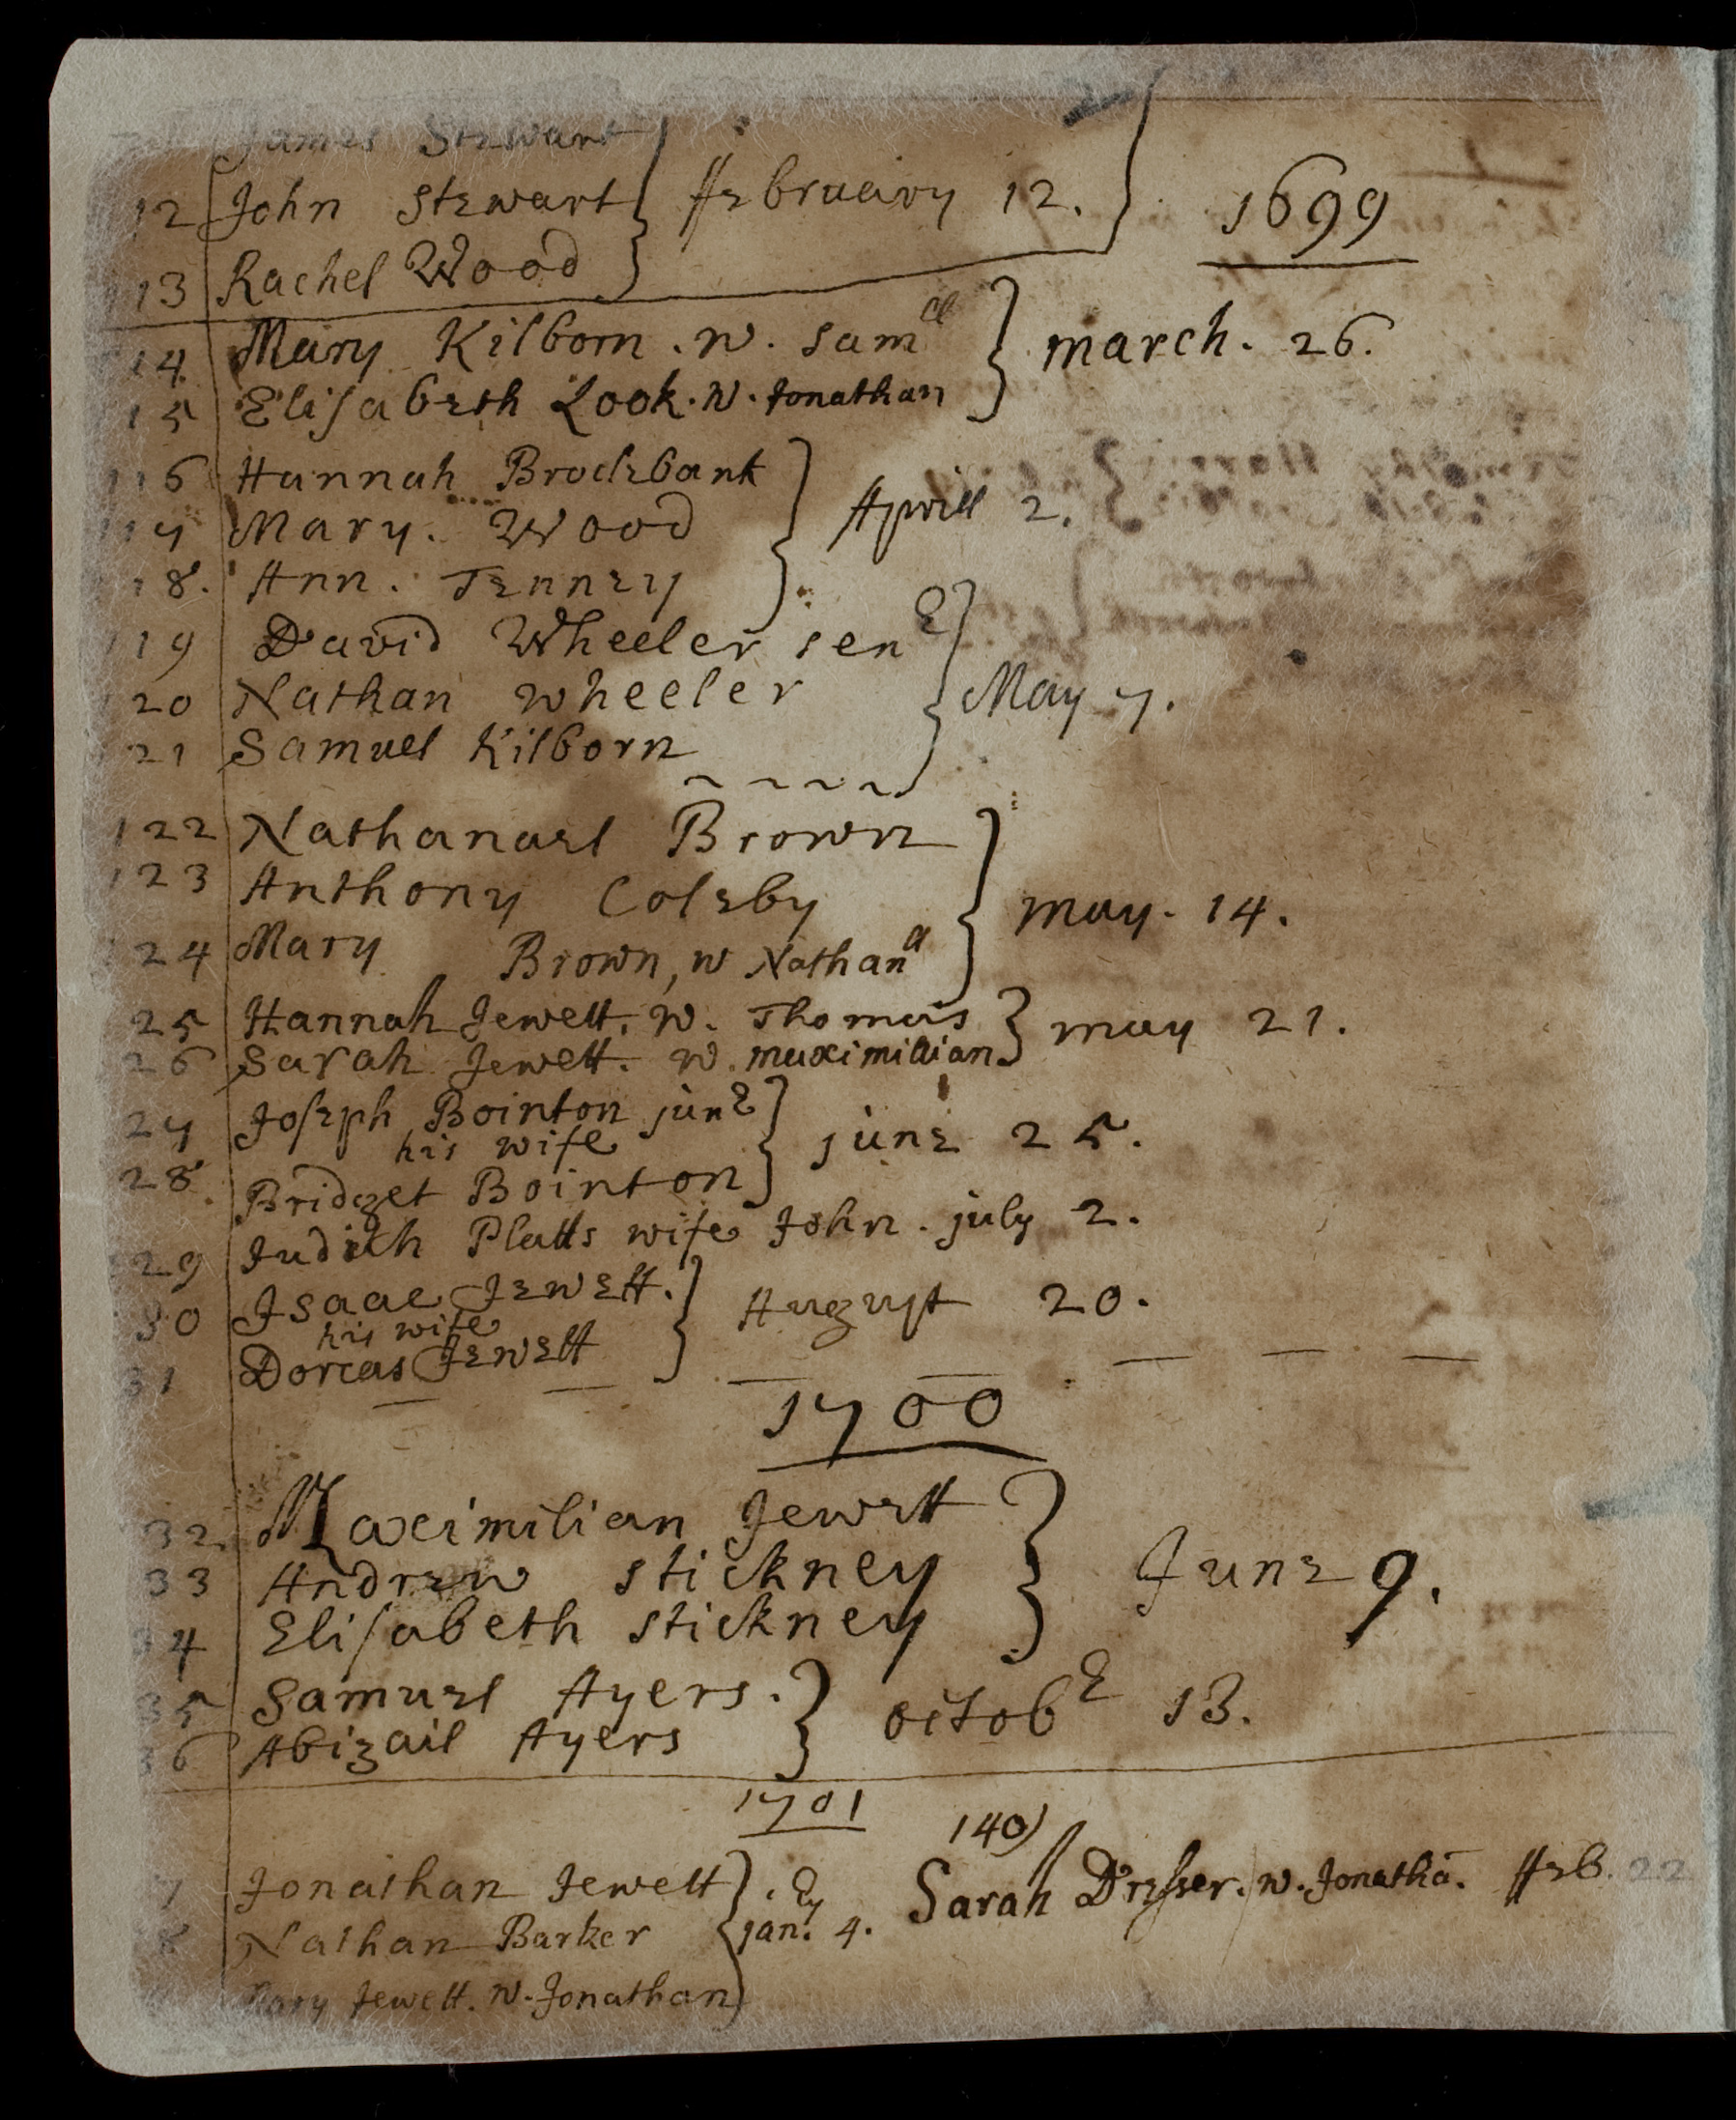 James Stewart
12 John Stewart } ffebruary 12. } 1699
13 Rachel Wood
14 Mary Kilborn. w. Sam^ll } march. 26.
15 Elisabeth Look. w. Jonathan
116 Hannah Brocklbank
117 Mary. Wood } Aprill 2.
18. Ann. Tenney
119 David Wheeler sen^r
20 Nathan wheeler } May 7.
21 Samuel Kilborn
122 Nathanael Brown
123 Anthony Coleby } may. 14.
24 Mary Brown, w Nathan^ll
25 Hannah Jewett. w. Thomas } may 21.
26 Sarah Jewett. w. maximilian
27 Joseph Bointon jun^r } june 25.
his wife
28. Bridget Bointon
29 Judith Platts wife John. july 2.
30 Isaac Jewett. } August 20.
his wife
31 Dorcas Jewett
1700
32. Maximilian Jewett
33 Andrew Stickney } June 9.
34 Elisabeth Stickney
35 Samuel Ayers. } octob^r 13.
36 Abigail Ayers
1701
140)
7 Jonathan Jewett } jan:^ry 4. Sarah Dresser. w. Jonathā. ffeb. 22
8 Nathan Barker
Mary Jewett. w. Jonathan